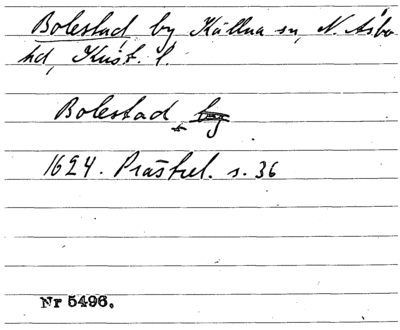 Bolestad by Källna sn, N. Åsbo
hd, Krist. l.
Bolestad
1624. Prästrel. s. 36
Nr 5496.